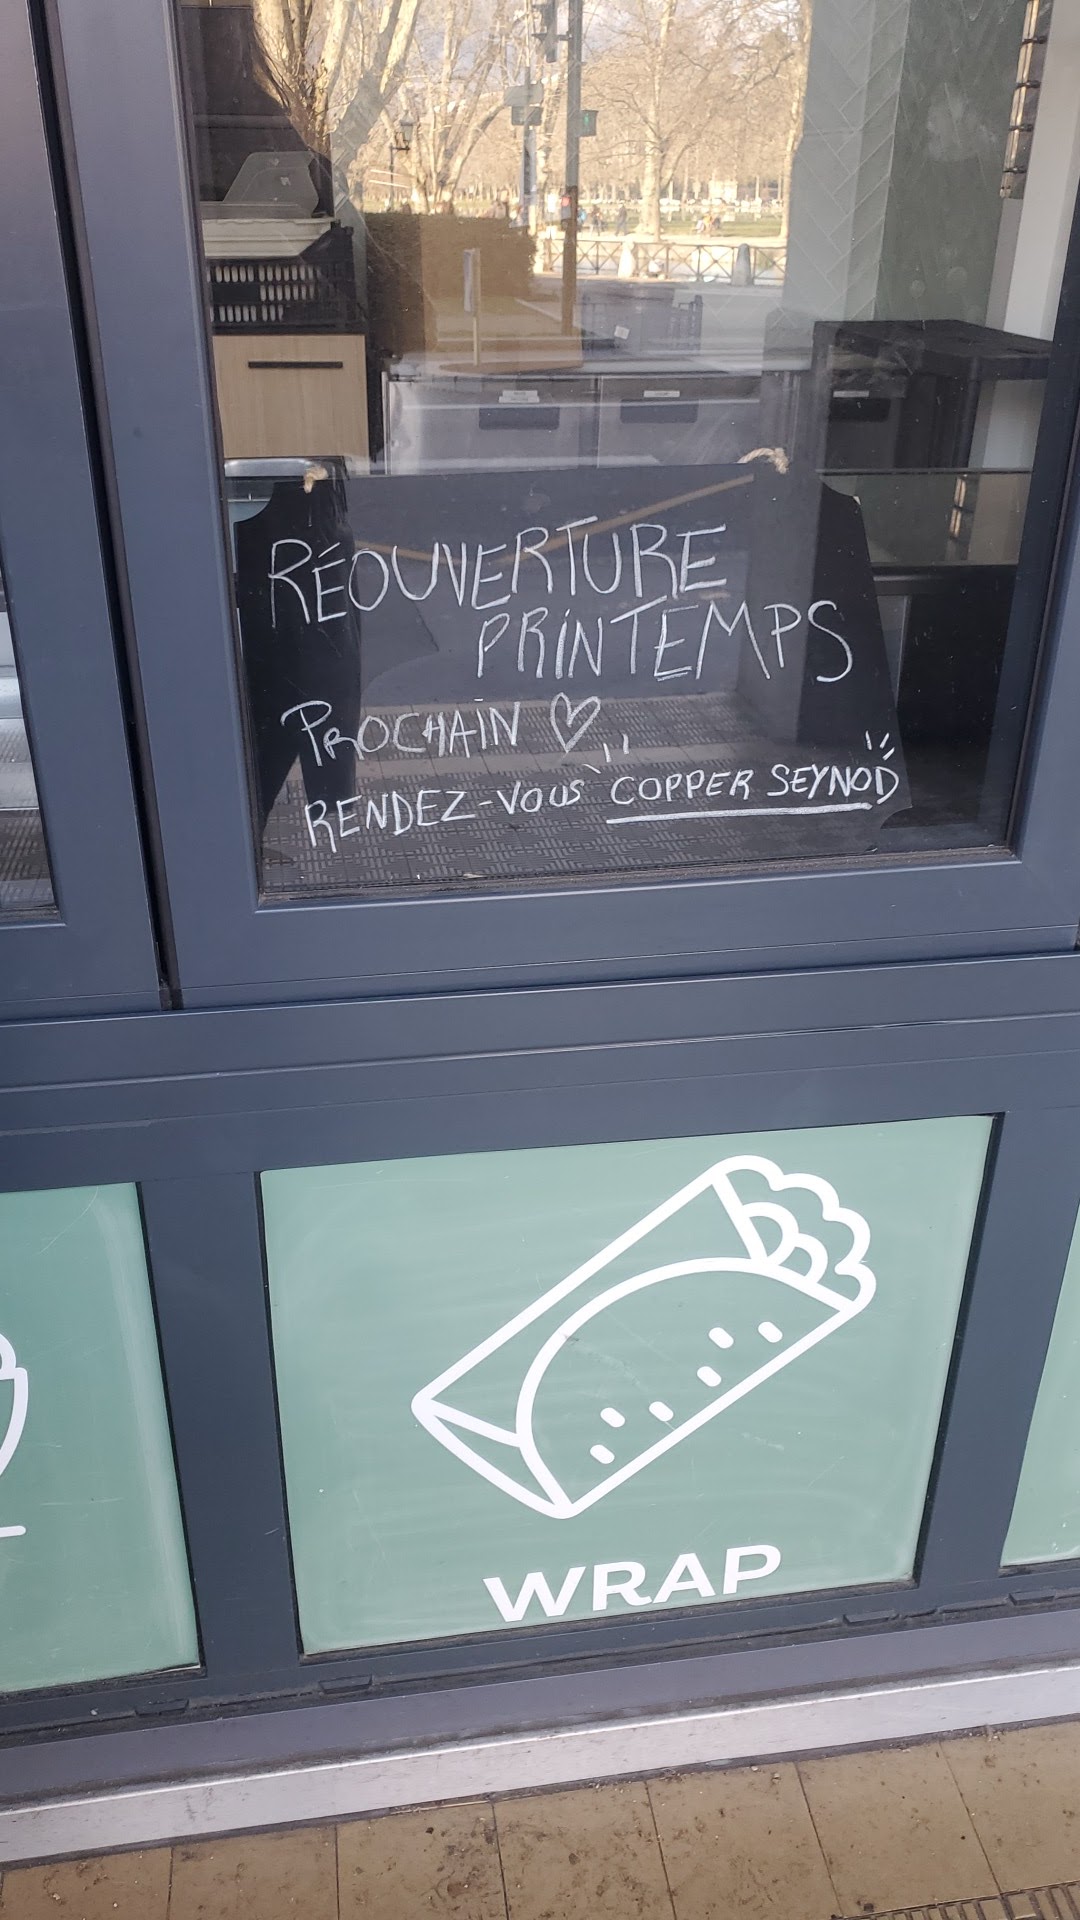 RÉOUVERTURE
PRINTEMPS
PROCHAIN ♡
RENDEZ-VOUS COPPER SEYNOD
WRAP